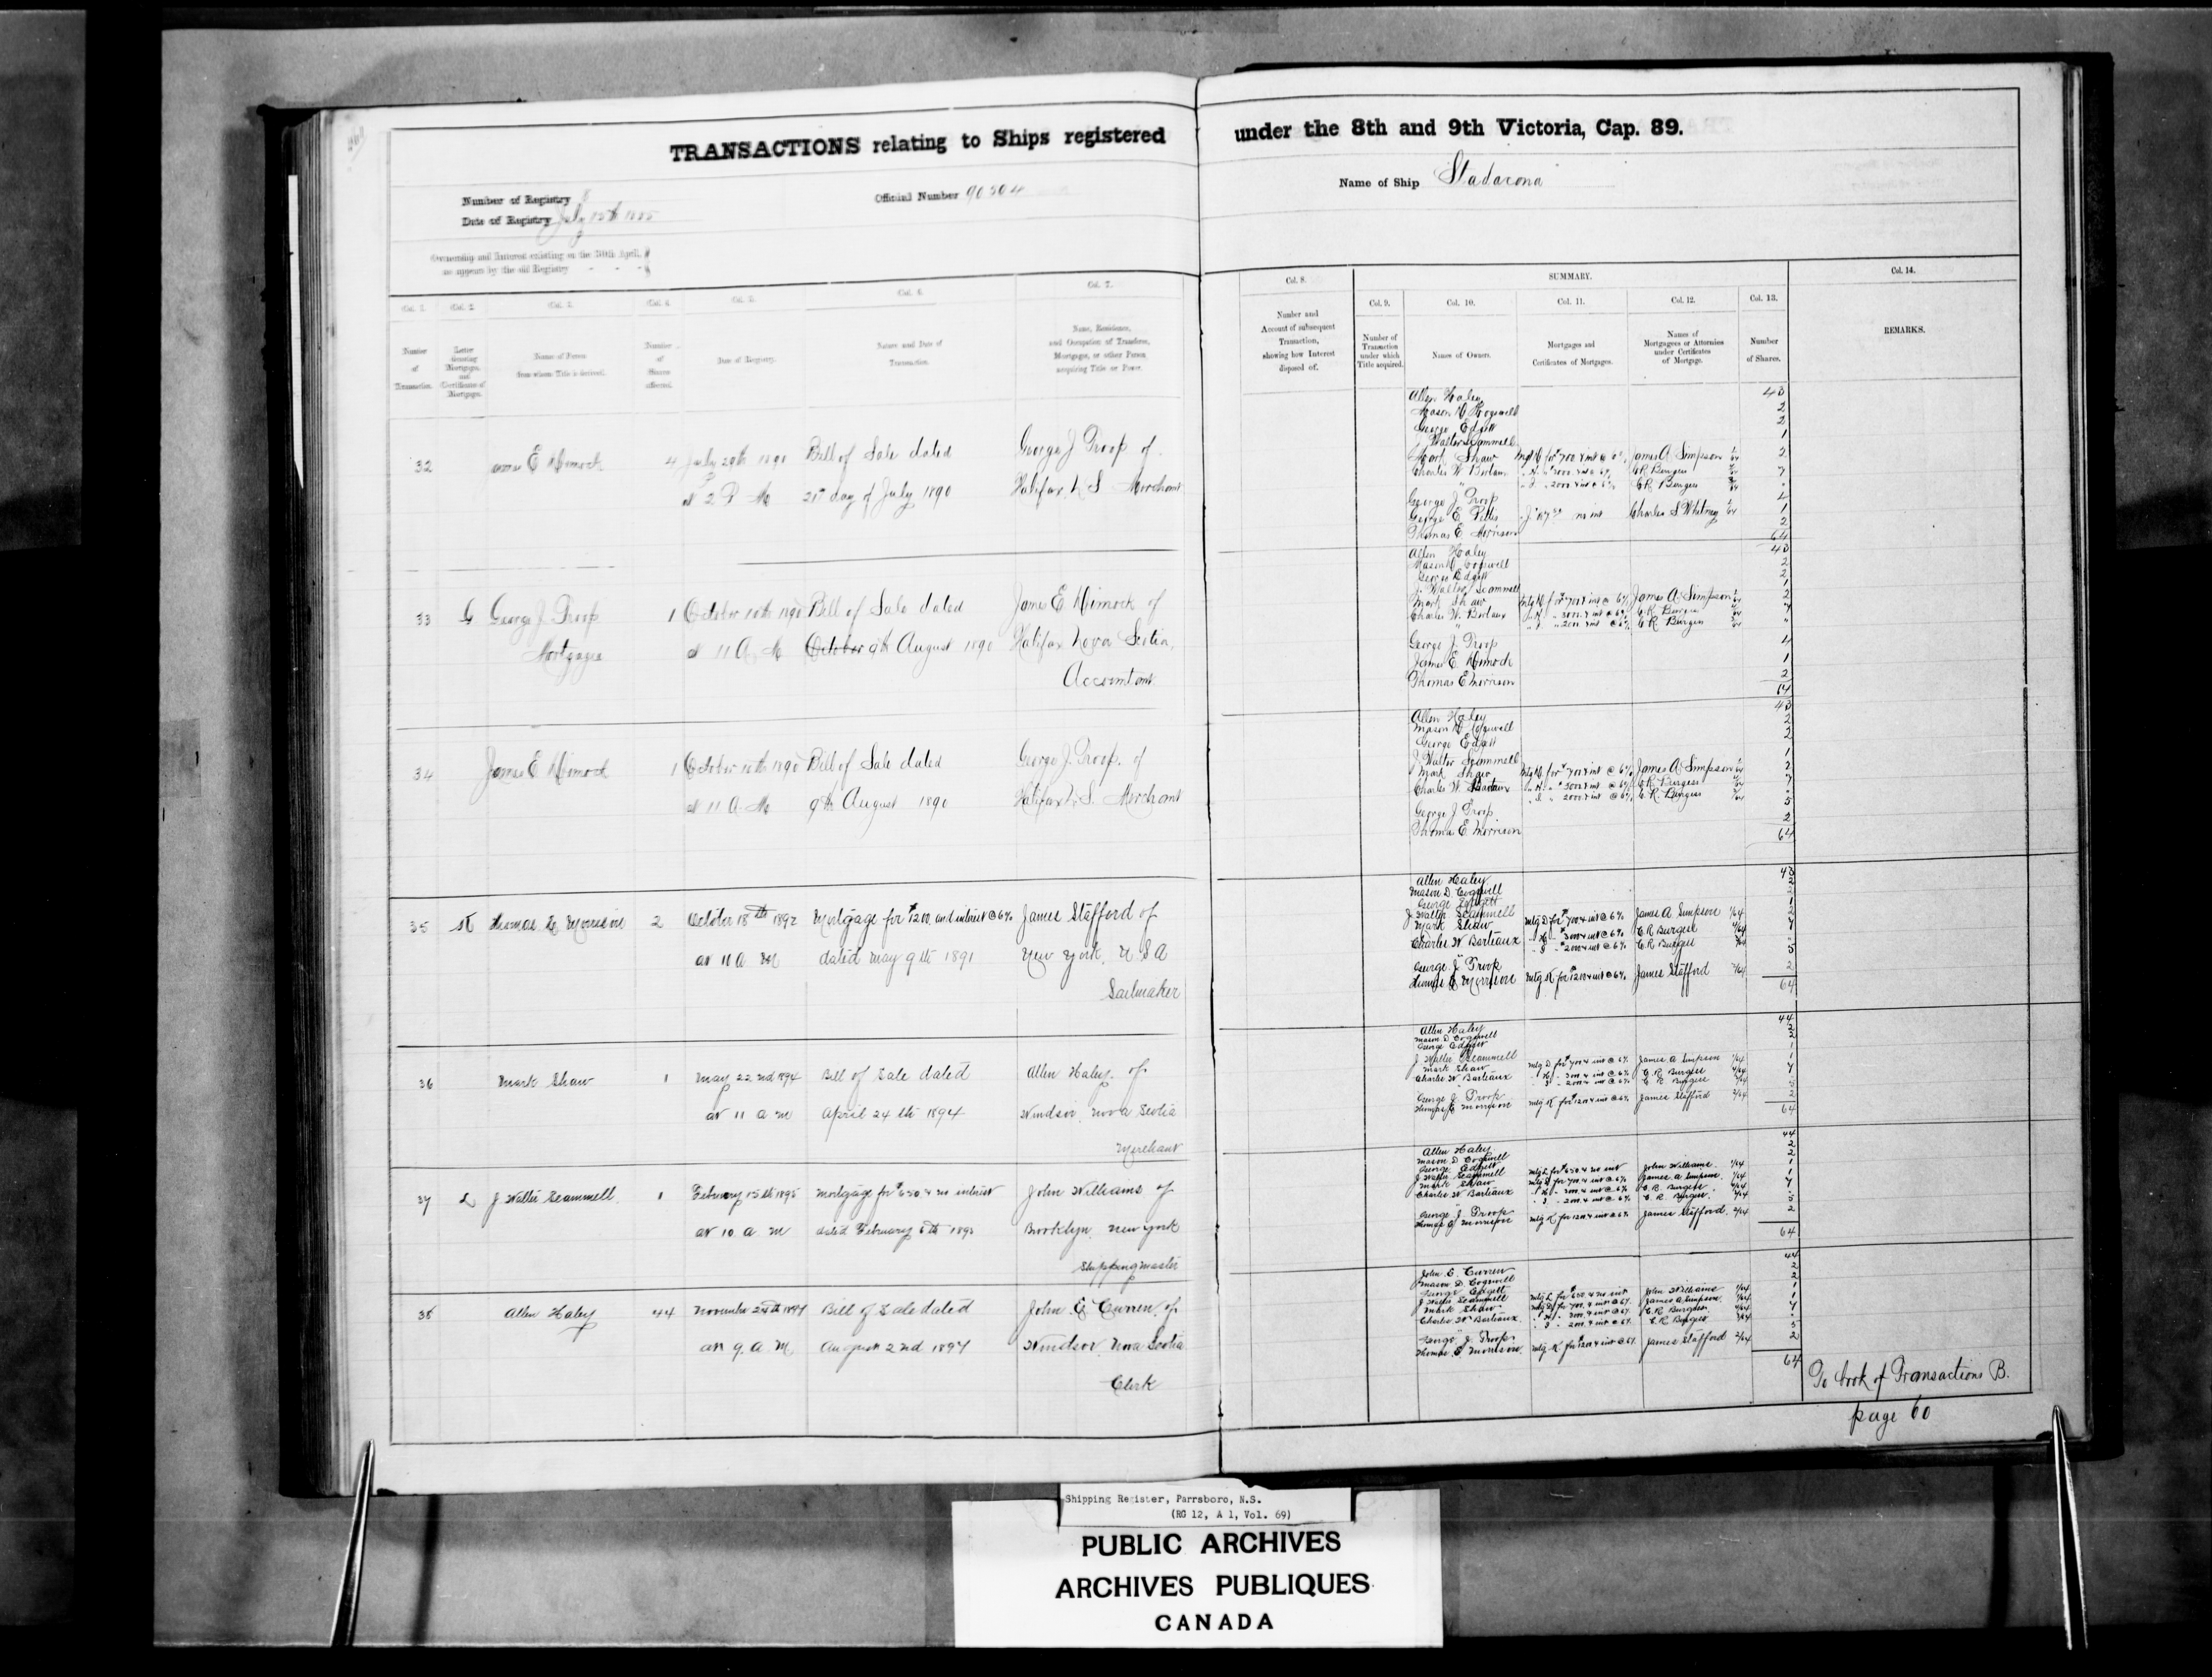 TRANSACTIONS relating to Ships registered under the 8th and 9th Victoria, Cap. 89.
Number of Registry
Official Number 90504
Name of Ship Stadacona
Date of Registry July 15th 1885
Ownership and Interest existing on the 30th April,
as appears by the old Registry
Col. 1. Col. 2. Col. 3. Col. 4. Col. 5. Col. 6. Col. 7.
Number of Transaction.
Letter denoting Mortgages and Certificates of Mortgages.
Name of Person from whom Title is derived.
Number of Shares affected.
Date of Registry.
Nature and Date of Transaction.
Name, Residence, and Occupation of Transferee, Mortgagee, or other Person acquiring Title or Power.
32 E Dimock 4 July 29th 1890 Bill of Sale dated George J Troop of
at 2 P M 21st day of July 1890 Halifax N S Merchant
33 G George J Troop 1 October 10th 1890 Bill of Sale dated James E Dimock of
Mortgagee at 11 A M October 9th August 1890 Halifax Nova Scotia,
Accountant
34 James E Dimock 1 October 10th 1890 Bill of Sale dated George J. Troop. of
at 11 A M 9th August 1890 Halifax N.S. Merchant
35 K Thomas E Morrison 2 October 18th 1892 Mortgage for $1200. and interest @ 6% James Stafford of
at 11 a m dated May 9th 1891 New York, U S A
Sailmaker
36 Mark Shaw 1 May 22nd 1894 Bill of Sale dated Allen Haley of
at 11 a m April 24th 1894 Windsor Nova Scotia
Merchant
37 L J Walter Scammell 1 February 15th 1895 Mortgage for $650. & no interest John Williams of
at 10 a m dated February 6th 189 Brooklyn New York
Shippingmaster
38 Allen Haley 44 November 24th 1897 Bill of Sale dated John E Curren, of
at 9 a m August 2nd 1897 Windsor Nova Scotia
Clerk
Col. 8.
Number and Account of subsequent Transaction, showing how Interest disposed of.
SUMMARY.
Col. 9. Col. 10. Col. 11. Col. 12. Col. 13. Col. 14.
Number of Transaction under which Title acquired.
Names of Owners.
Mortgages and Certificates of Mortgages.
Names of Mortgagees or Attornies under Certificates of Mortgage.
Number of Shares.
REMARKS.
Allen Haley 43
Mason D Cogswell 2
George Edgett 2
J Walter Scammell 1
Mark Shaw Mtg D for $700 & int @ 6% James A. Simpson 2
Charles W Barteaux C R Burgess 7
C R Burgess
George J Troop 4
George E Charles S Whitney 1
Thomas E Morrison 2
64
Allen Haley 43
Mason D Cogswell 2
George Edgett 2
J. Walter Scammell 1
Mark Shaw James A. Simpson 2
Charles W. Barteaux C R Burgess 7
C R Burgess
George J Troop 4
James E. Dimock 1
Thomas E Morrison 2
64
Allen Haley 43
Mason D Cogswell 2
George Edgett 2
J Walter Scammell 1
Mark Shaw James A. Simpson 2
Charles W. Barteaux C R Burgess 7
C. R. Burgess
George J Troop 5
Thomas E. Morrison 2
64
Allen Haley 43
Mason D. Cogswell 2
George Edgett 2
J. Walter Scammell 1
Mark Shaw Mtg D for $700 & int @ 6% James A Simpson 1/64 2
Charles W Barteaux C R Burgess 7
C R Burgess
George J Troop 5
Thomas E Morrison Mtg K for $1200 & int @ 6% James Stafford 2/64 2
64
Allen Haley 44
Mason D Cogswell 2
George Edgett 2
J Walter Scammell 1
Mark Shaw Mtg D for $700 & int @ 6% James A Simpson 1/64 1
Charles W Barteaux C. R Burgess 7
C R Burgess
George J Troop 5
Thomas E Morrison Mtg K for $1200 & int @ 6% James Stafford 2/64 2
64
Allen Haley 44
Mason D Cogswell 2
George Edgett 2
J Walter Scammell Mtg L for $650. & no int John Williams. 1/64 1
Mark Shaw Mtg D for $700 & int @ 6% James A Simpson 1/64 1
Charles W Barteaux C. R. Burgess 7
C. R. Burgess
George J. Troop 5
Thomas E Morrison Mtg K for $1200 & int @ 6% James Stafford. 2/64 2
64
John E. Curren 44
Mason D. Cogswell 2
George Edgett 2
J Walter Scammell Mtg L for $650 & no int John Williams 1/64 1
Mark Shaw James A Simpson. 1/64 1
Charles W Barteaux C. R Burgess 7
C R Burgess
George J Troop 5
Thomas E Morrison. Mtg K for $1200 & int @ 6% James Stafford 2/64 2
64
To book of Transactions B.
page 60
Shipping Register, Parrsboro, N.S.
(RG 12, A 1, Vol. 69)
PUBLIC ARCHIVES
ARCHIVES PUBLIQUES
CANADA